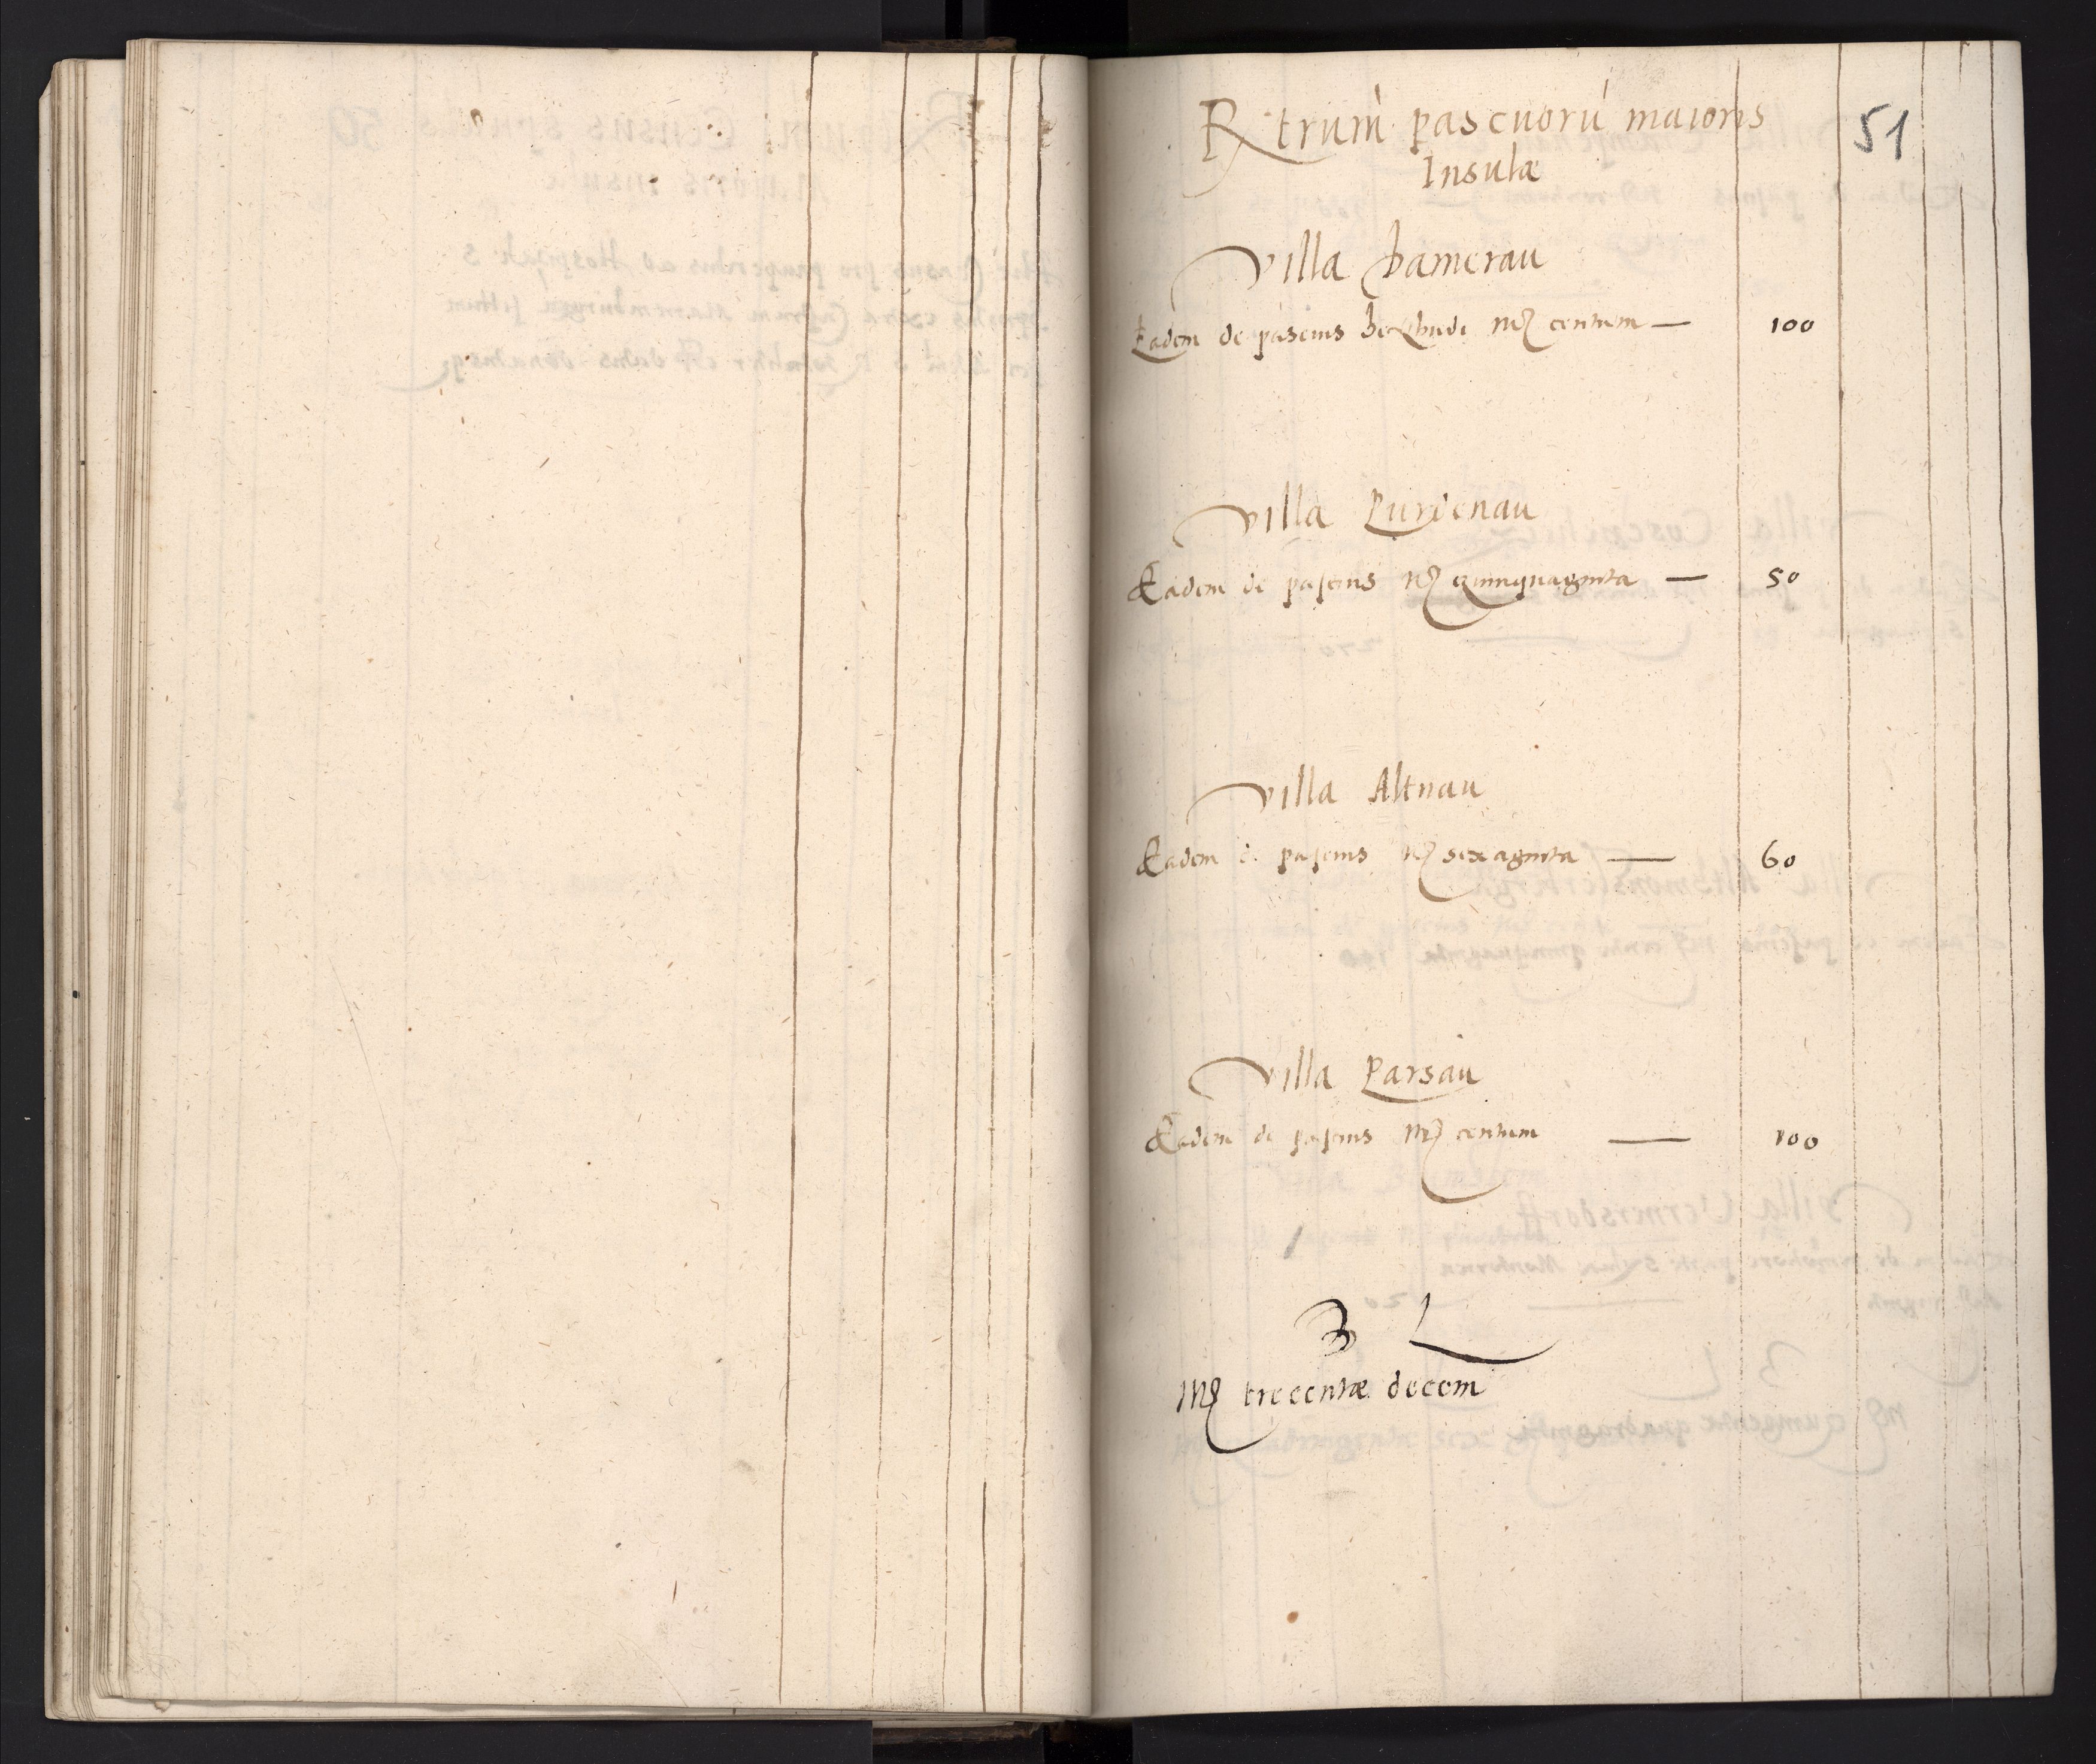 Rtrum pascuorú maioris
51
Insulæ
Villa Damerau
Eadem de pascuis mꝛ centum — 100
Villa Purdenau
Eadem de pascuis mꝛ quinquaginta — 50
Villa Altnau
Eadem de pascuis mꝛ sexaginta — 60
Villa Parsau
Eadem de pascuis mꝛ centum — 100
L
mꝛ trecentæ decem